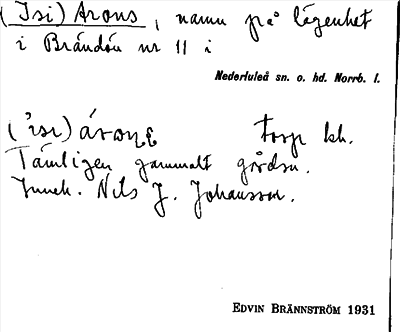 (Isi) Arons, namn på lägenhet
i Brändön nr 11 i
Nederluleå sn. o. hd. Norrb. l.
torp bh.
Tämligen gammalt
Inneh. Nils J. Johansson.
EDVIN BRÄNNSTRÖM 1931